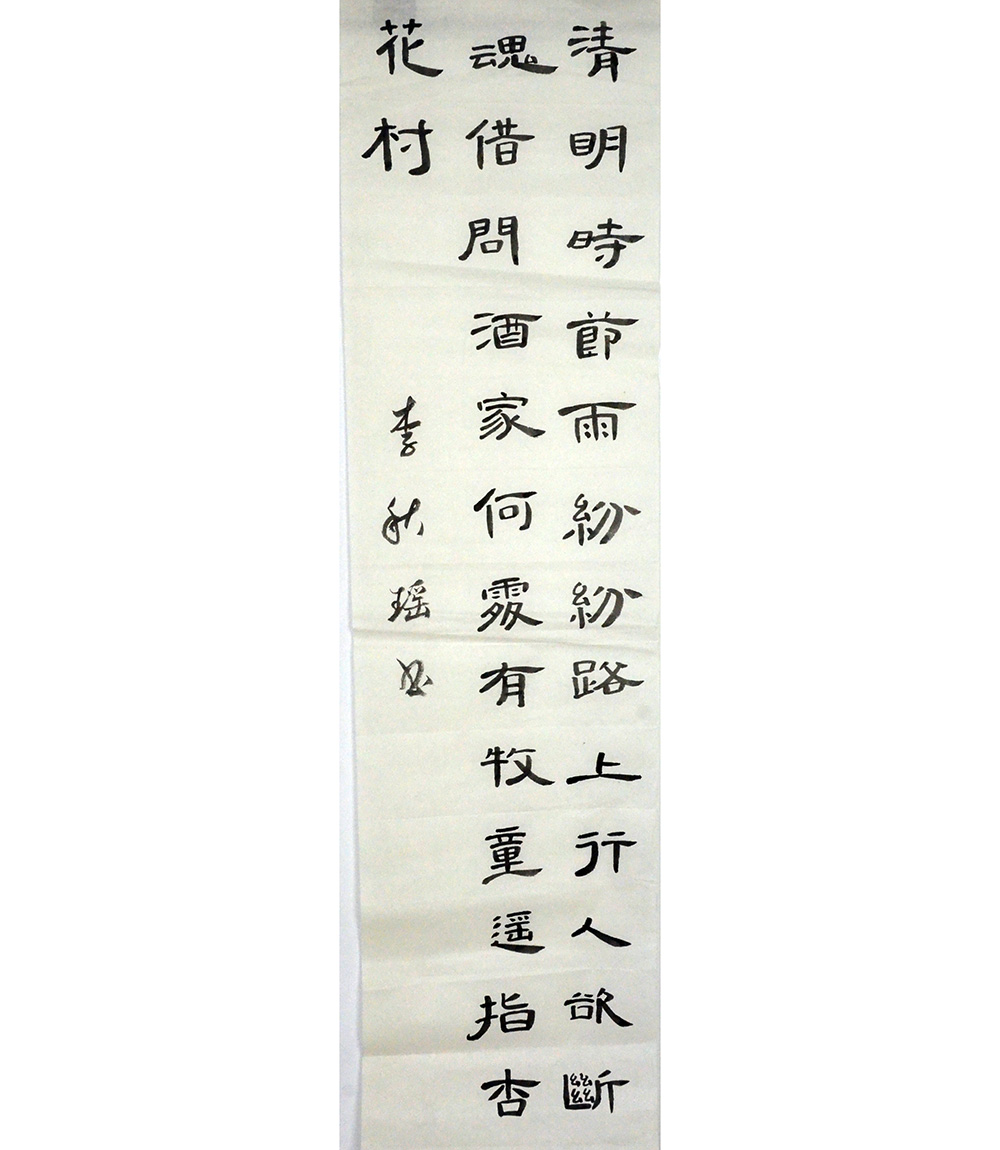 清明時節雨紛紛路上行人欲斷
魂借問酒家何處有牧童遥指杏
花村
李秋瑶书